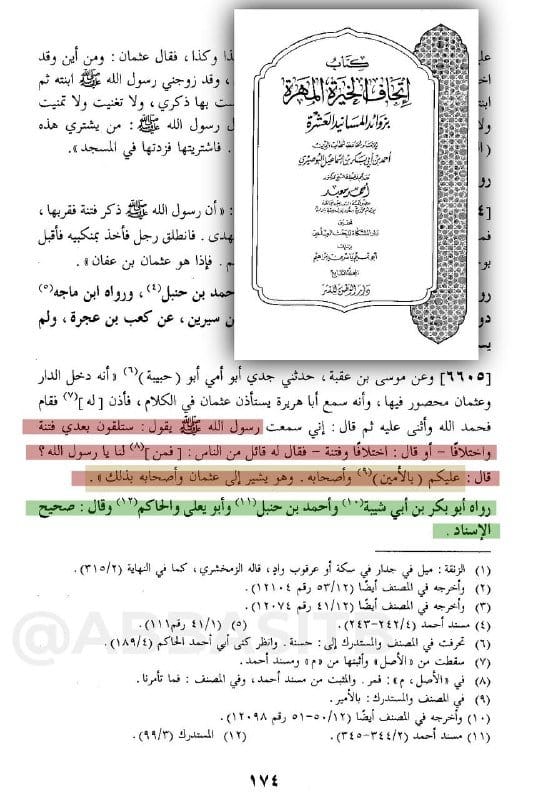 عليـ
ـذا وكذا ، فقال عثمان : ومن أين وقد
، وقد زوجني رسول الله ﷺ ابنته ثم
ـت بها ذكري ، ولا تغنيت ولا تمنيت
ل رسول الله ﷺ : من يشتري هذه
. فاشتريتها فزدتها في المسجد» .
كتاب
إتحاف الخيرة المهرة
بزوائد المسانيد العشرة
أحمد بن أبي بكر بن إسماعيل البوصيري
: «أن رسول الله ﷺ ذكر فتنة فقربها ،
ـهدى . فانطلق رجل فأخذ بمنكبيه فأقبل
ـم . فإذا هو عثمان بن عفان» .
ـمد بن حنبل (٤) ، ورواه ابن ماجه (٥)
ن سيرين ، عن كعب بن عجرة ، ولم
[٦٦٠٥] وعن موسى بن عقبة ، حدثني جدي أبو أمي أبو (حبيبة) (٦) «أنه دخل الدار
وعثمان محصور فيها ، وأنه سمع أبا هريرة يستأذن عثمان في الكلام ، فأذن [له] (٧) فقام
فحمد الله وأثنى عليه ثم قال : إني سمعت رسول الله ﷺ يقول : ستلقون بعدي فتنة
واختلافًا - أو قال : اختلافًا وفتنة - فقال له قائل من الناس : [فمن] (٨) لنا يا رسول الله ؟
قال : عليكم (بالأمين) (٩) وأصحابه . وهو يشير إلى عثمان وأصحابه بذلك» .
رواه أبو بكر بن أبي شيبة (١٠) وأحمد بن حنبل (١١) وأبو يعلى والحاكم (١٢) وقال : صحيح
الإسناد .
(١) الزنقة : ميل في جدار في سكة أو عرقوب وادٍ ، قاله الزمخشري ، كما في النهاية (٣١٥/٢) .
(٢) وأخرجه في المصنف أيضًا (٥٣/١٢ رقم ١٢١٠٤) .
(٣) وأخرجه في المصنف أيضًا (٤١/١٢ رقم ١٢٠٧٤) .
(٤) مسند أحمد (٢٤٢/٤-٢٤٣) . (٥) (٤١/١ رقم١١١) .
(٦) تحرفت في المصنف والمستدرك إلى : حسنة . وانظر كنى أبي أحمد الحاكم (١٨٩/٤) .
(٧) سقطت من «الأصل» وأثبتها من «م» ومسند أحمد .
(٨) في «الأصل ، م» : فمر . والمثبت من مسند أحمد ، وفي المصنف : فما تأمرنا .
(٩) في المصنف والمستدرك : بالأمير .
(١٠) وأخرجه في المصنف أيضًا (٥٠/١٢-٥١ رقم ١٢٠٩٨) .
(١١) مسند أحمد (٣٤٤/٢-٣٤٥) . (١٢) المستدرك (٩٩/٣) .
١٧٤